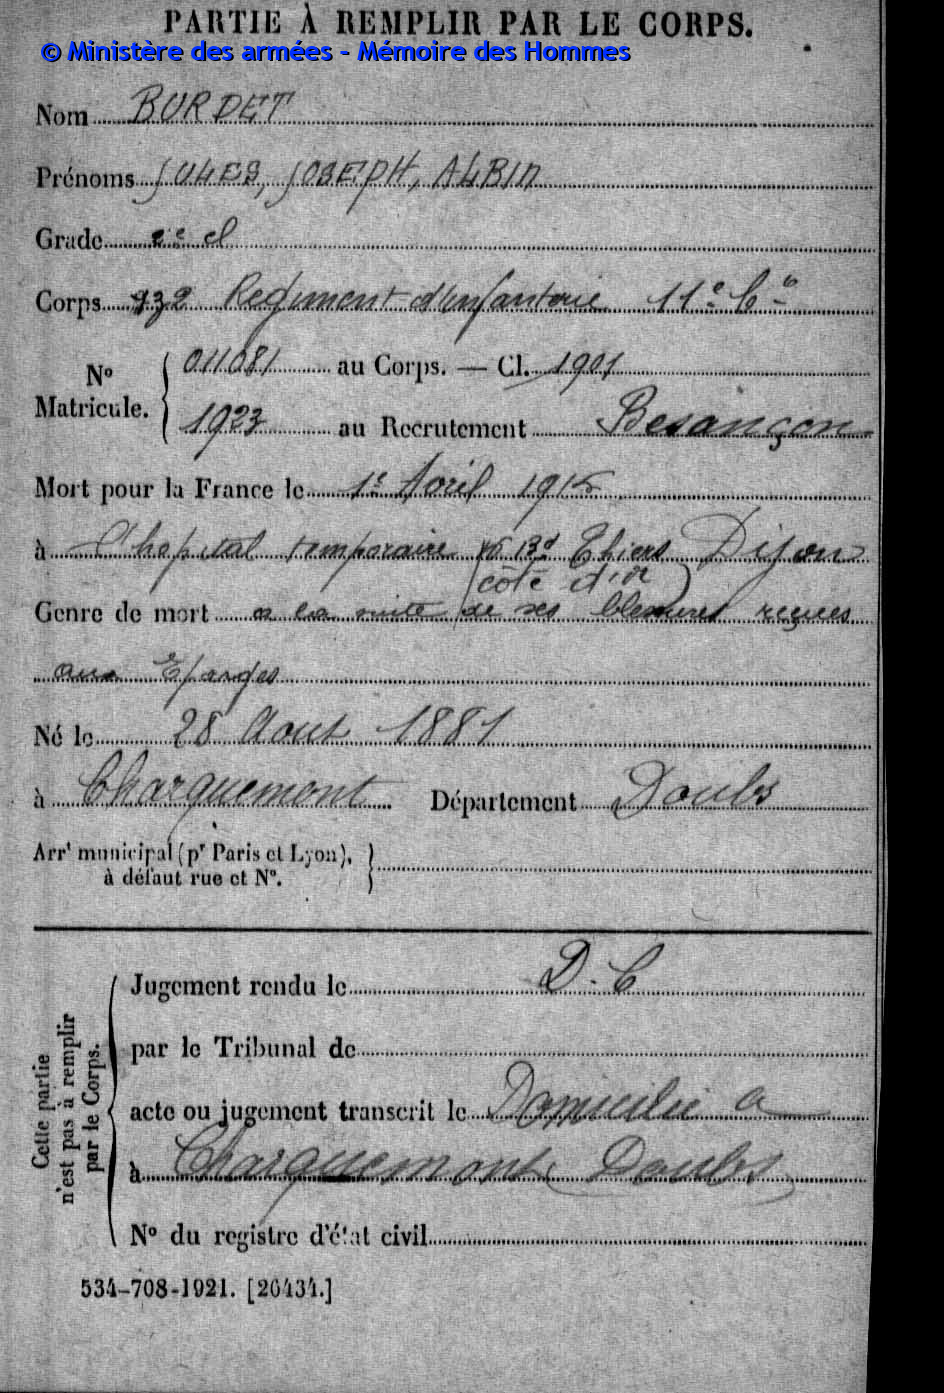 PARTIE À REMPLIR PAR LE CORPS.
© Ministère des armées - Mémoire des Hommes
Nom BURDET
Prénoms JULES, JOSEPH, ALBIN
Grade 2e cl
Corps 132 Regiment d'infanterie 11e Cie
No Matricule. 011081 au Corps. — Cl. 1901
1923 au Recrutement Besançon
Mort pour la France le 1e Avril 1915
à l'hopital temporaire Bd Thiers Dijon
(côte d'or)
Genre de mort a la suite de ses blessures reçues
aux Eparges
Né le 28 Aout 1881
à Charquemont Département Doubs
Arrt municipal (pr Paris et Lyon),
à défaut rue et No.
Cette partie
n'est pas à remplir
par le Corps.
Jugement rendu le D. C
par le Tribunal de
acte ou jugement transcrit le Domicilié a
à Charquemont (Doubs)
No du registre d'état civil
534-708-1921. [26434.]